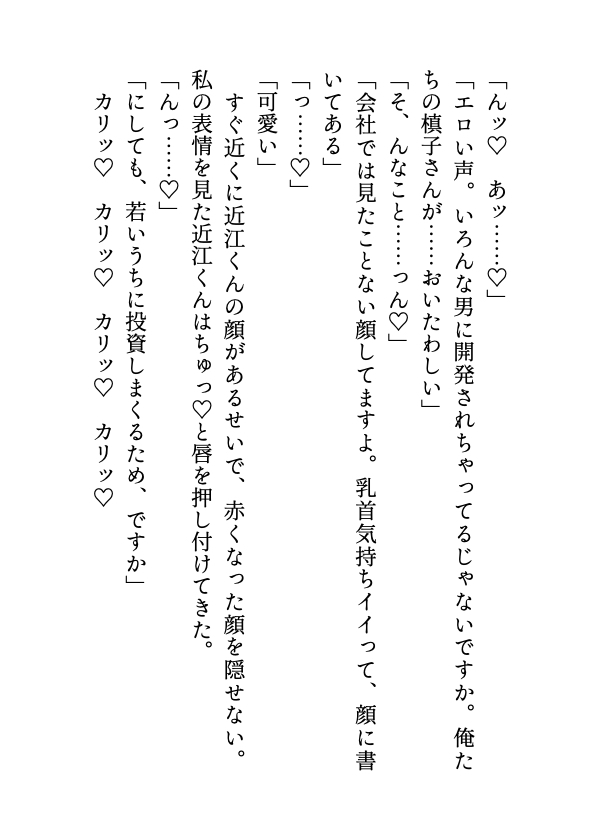 「んッ♡　あッ……♡」
「エロい声。いろんな男に開発されちゃってるじゃないですか。俺た
ちの槙子さんが……おいたわしい」
「そ、んなこと……っん♡」
「会社では見たことない顔してますよ。乳首気持ちイイって、顔に書
いてある」
「っ……♡」
「可愛い」
　すぐ近くに近江くんの顔があるせいで、赤くなった顔を隠せない。
私の表情を見た近江くんはちゅっ♡と唇を押し付けてきた。
「んっ……♡」
「にしても、若いうちに投資しまくるため、ですか」
　カリッ♡　カリッ♡　カリッ♡　カリッ♡